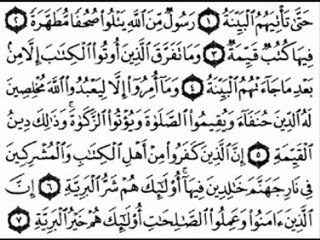 حَتَّىٰ تَأْتِيَهُمُ ٱلْبَيِّنَةُ ۝١ رَسُولٌ مِّنَ ٱللَّهِ يَتْلُوا۟ صُحُفًا مُّطَهَّرَةً ۝٢
فِيهَا كُتُبٌ قَيِّمَةٌ ۝٣ وَمَا تَفَرَّقَ ٱلَّذِينَ أُوتُوا۟ ٱلْكِتَـٰبَ إِلَّا مِنۢ
بَعْدِ مَا جَآءَتْهُمُ ٱلْبَيِّنَةُ ۝٤ وَمَآ أُمِرُوٓا۟ إِلَّا لِيَعْبُدُوا۟ ٱللَّهَ مُخْلِصِينَ
لَهُ ٱلدِّينَ حُنَفَآءَ وَيُقِيمُوا۟ ٱلصَّلَوٰةَ وَيُؤْتُوا۟ ٱلزَّكَوٰةَ ۚ وَذَٰلِكَ دِينُ
ٱلْقَيِّمَةِ ۝٥ إِنَّ ٱلَّذِينَ كَفَرُوا۟ مِنْ أَهْلِ ٱلْكِتَـٰبِ وَٱلْمُشْرِكِينَ
فِى نَارِ جَهَنَّمَ خَـٰلِدِينَ فِيهَآ ۚ أُو۟لَـٰٓئِكَ هُمْ شَرُّ ٱلْبَرِيَّةِ ۝٦ إِنَّ
ٱلَّذِينَ ءَامَنُوا۟ وَعَمِلُوا۟ ٱلصَّـٰلِحَـٰتِ أُو۟لَـٰٓئِكَ هُمْ خَيْرُ ٱلْبَرِيَّةِ ۝٧